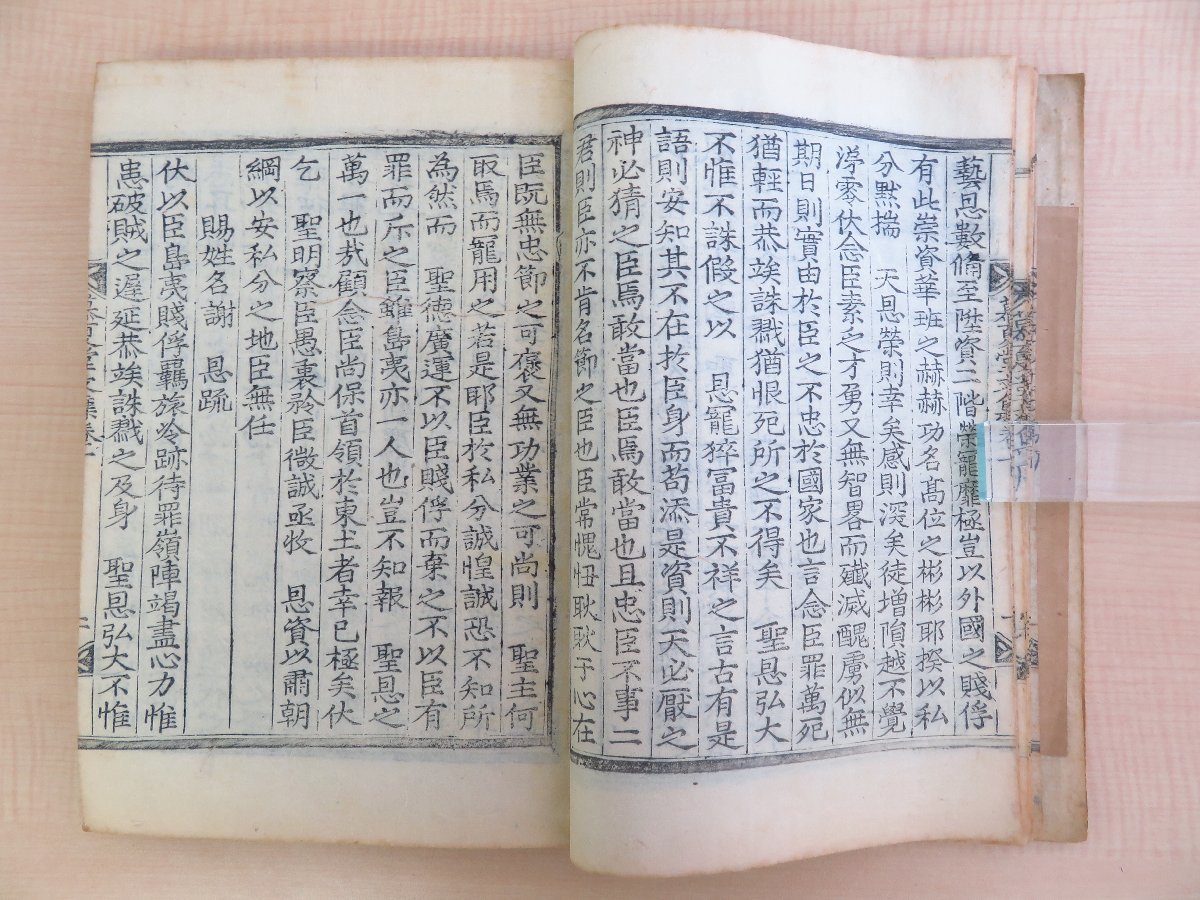 藝恩數俻至陞資二階榮寵靡極豈以外國之賤俘
有此崇資華班之赫赫功名髙位之彬彬耶揆以私
分黙揣 天恩榮則幸矣感則深矣徒增隕越不覺
涕零伏念臣素乏才勇又無智畧而殲滅醜虜似無
期日則實由於臣之不忠於國家也言念臣罪萬死
猶輕而恭竢誅戮猶恨死所之不得矣 聖恩弘大
不惟不誅假之以 恩寵猝冨貴不祥之言古有是
語則安知其不在於臣身而苟添是資則天必厭之
神必猜之臣焉敢當也臣焉敢當也且忠臣不事二
君則臣亦不肯名節之臣也臣常愧忸耿耿于心在
臣既無忠節之可褒又無功業之可尚則 聖主何
取焉而寵用之若是耶臣於私分誠惶誠恐不知所
為然而 聖德廣運不以臣賤俘而棄之不以臣有
罪而斥之臣雖島夷亦一人也豈不知報 聖恩之
萬一也㢤顧念臣尚保首領於東土者幸已極矣伏
乞 聖明察臣愚衷矜臣微誠亟收 恩資以肅朝
綱以安私分之地臣無任
賜姓名謝 恩疏
伏以臣島夷賤俘羈旅冷跡待罪嶺陣竭盡心力惟
恚破賊之遅延恭竢誅戮之及身 聖恩弘大不惟